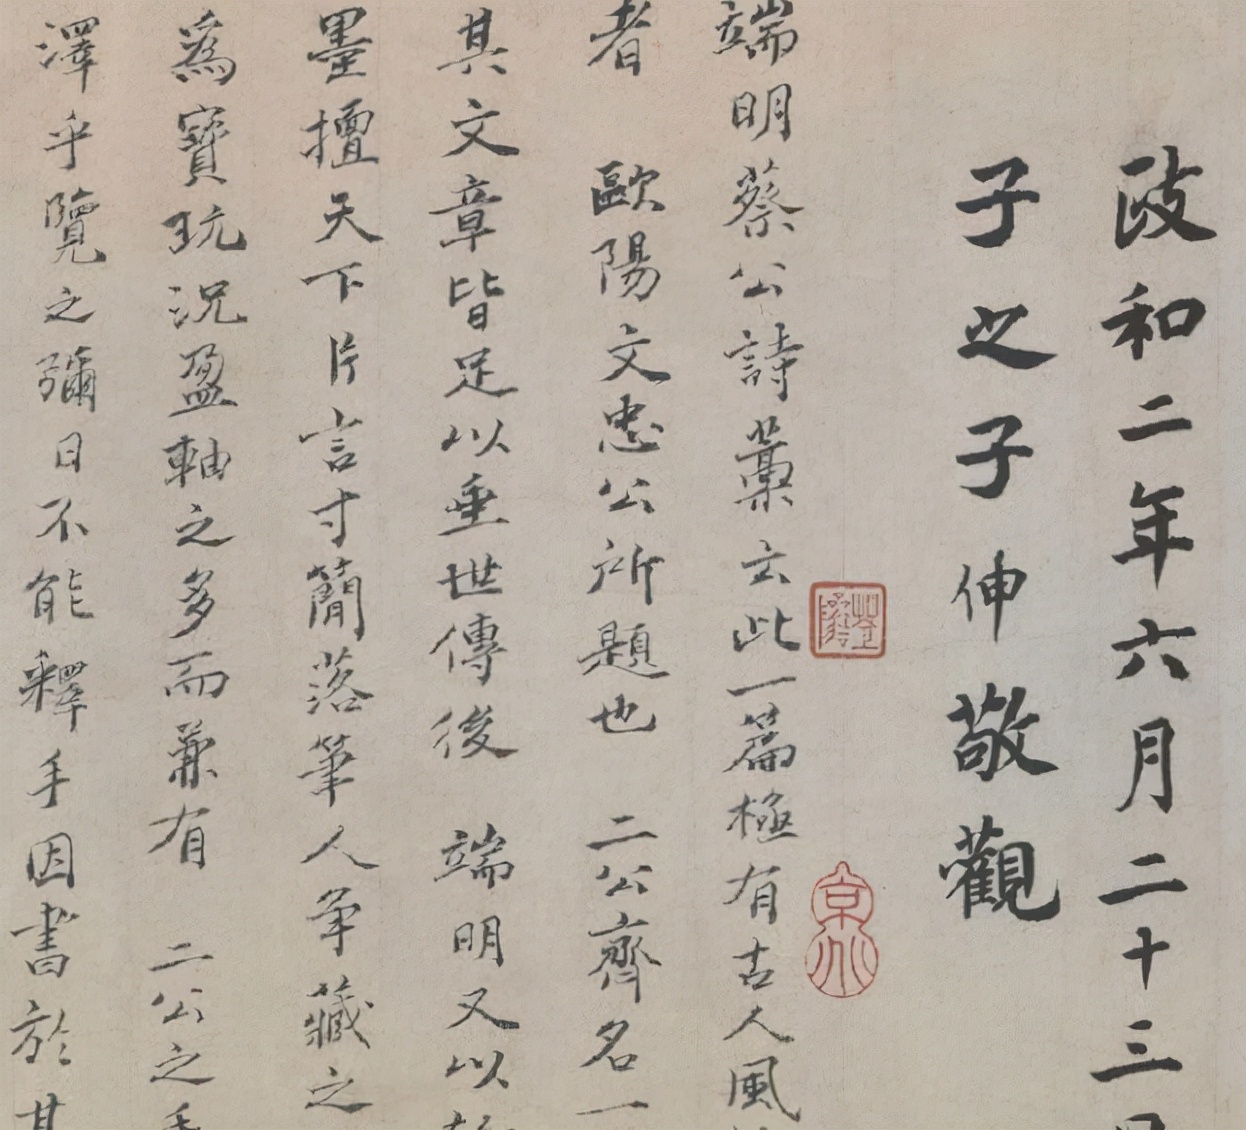 政和二年六月二十三
子之子伸敬觀
端明蔡公詩藁云此一篇極有古人風
者 歐陽文忠公所題也 二公齊名一
其文章皆足以垂世傳後 端明又以
墨擅天下片言寸簡落筆人争藏之
爲寶玩況盈軸之多而兼有 二公之手
澤乎覽之彌日不能釋手因書於其